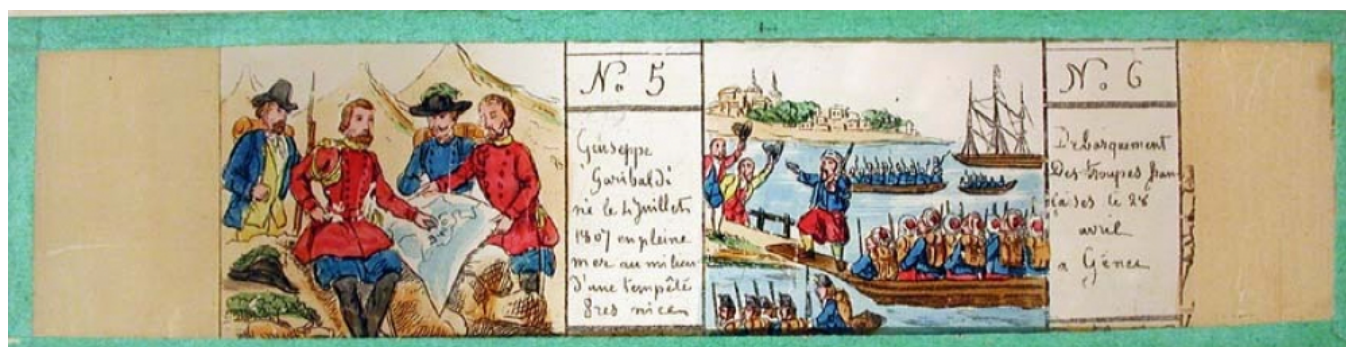 No 5
Giuseppe
Garibaldi
né le 4 Juillets
1807 en pleine
mer au milieu
d'une tempête
Pres nice
No 6
Debarquement
Des troupes fran
çaises le 28
avril
a Gênes